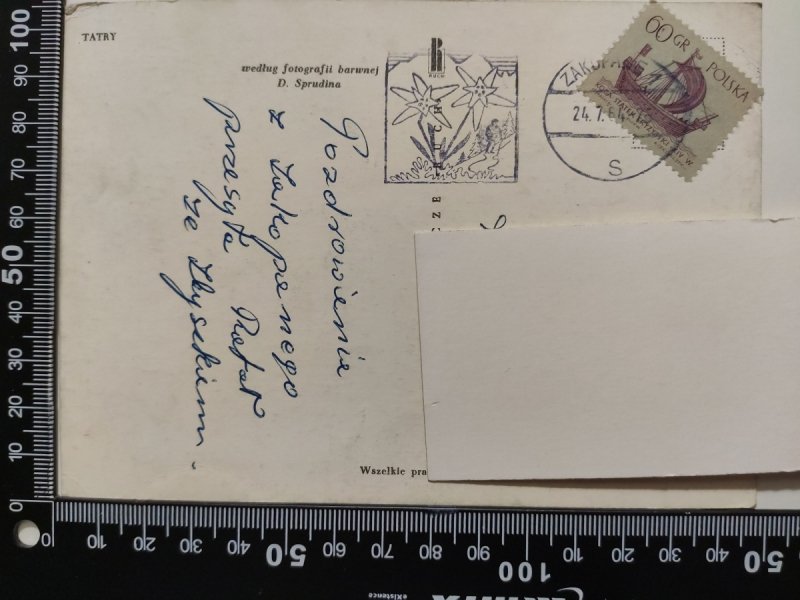 TATRY
według fotografii barwnej
D. Sprudina
RUCH
Pozdrowienie
z Zakopanego
przesyła Rafał
ze Zbyszkiem.
ZAKOPANE
24.7.64
S
60 GR
POLSKA
Wszelkie pra
100
90
80
70
60
50
40
30
20
10
0
0
10
20
30
40
50
60
70
80
90
100
10
20
30
40
50
eXistence